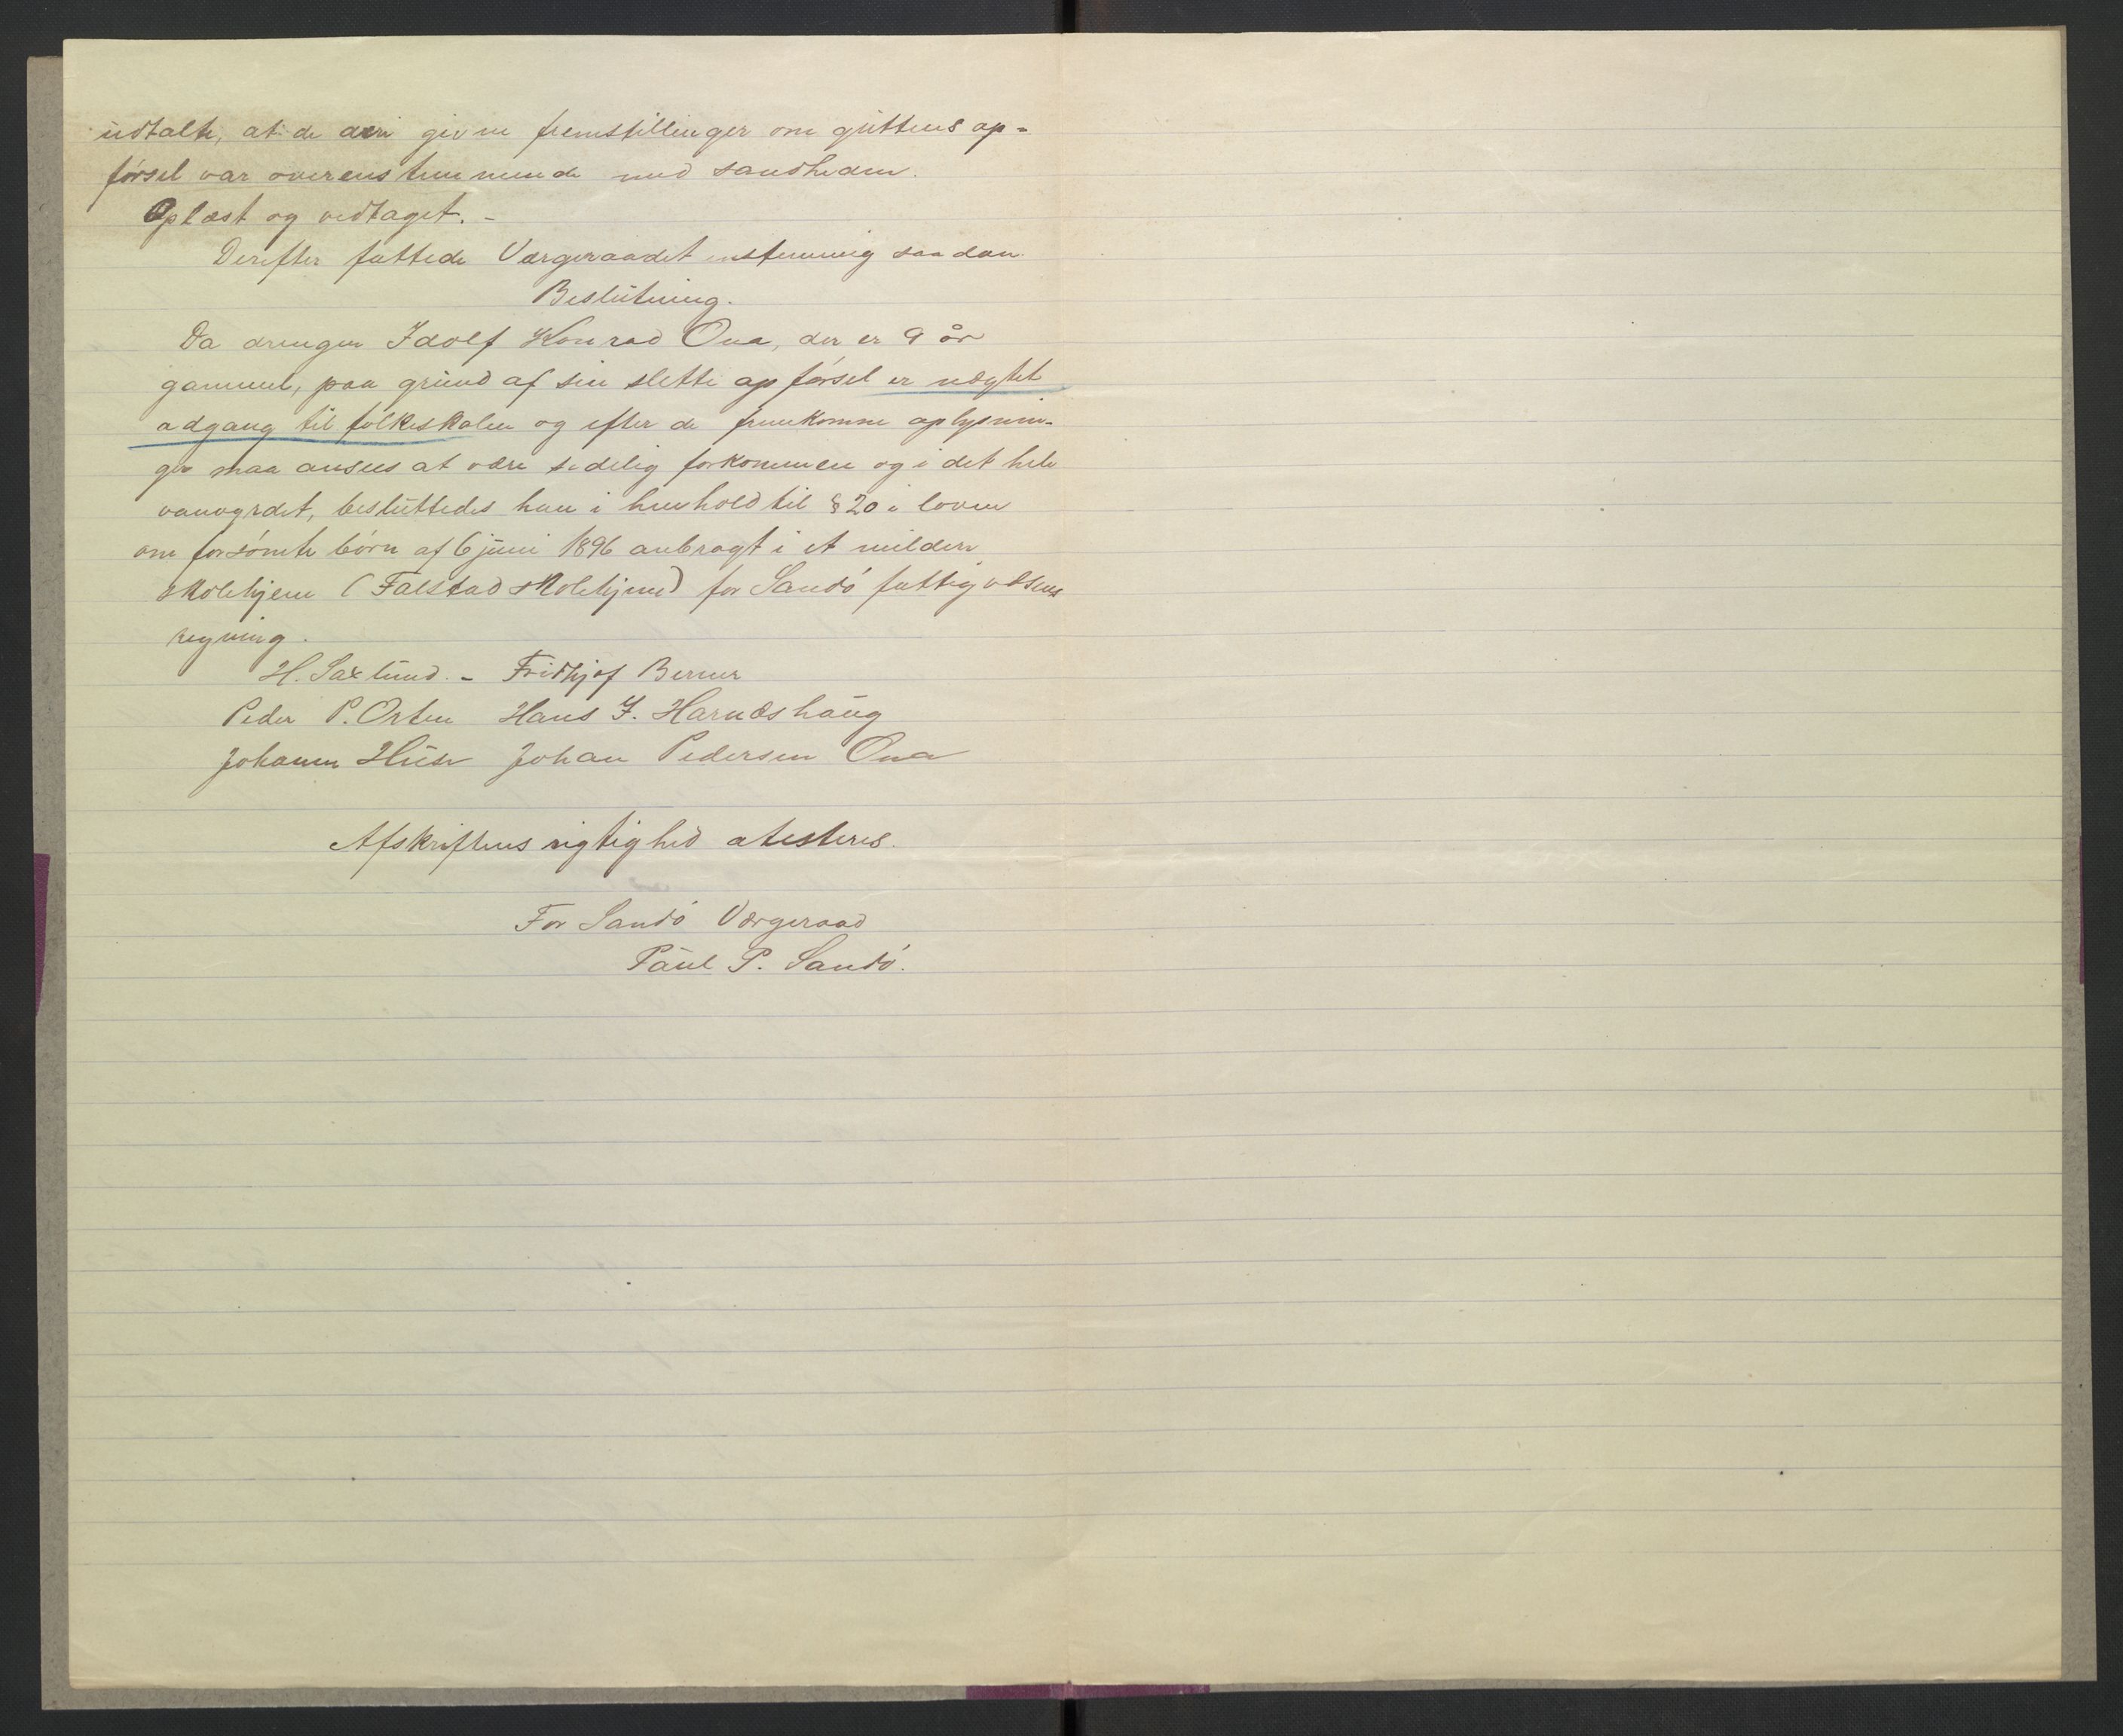 udtalte, at de deri givne fremstillinger om guttens op-
førsel var overenstemmende med sandheden.
Oplæst og vedtaget. -
Derefter fattede Værgeraadet enstemmig saadan
Beslutning.
Da drengen Idolf Konrad Ona, der er 9 år
gammel, paa grund af sin slette opførsel er nægtet
adgang til folkeskolen og efter de fremkomne oplysnin-
ger maa ansees at være sedelig forkommen og i det hele
vanvyrdet, besluttedes han i henhold til § 20 i loven
om forsømte børn af 6 juni 1896 anbragt i et mildere
skolehjem (Falstad skolehjem) for Sandø fattigvæsens
regning.
H. Saxlund. - Fridthjof Berner
Peder P. Orten Hans J. Harnæshaug
Johann Huse Johan Pedersen Ona
Afskriftens rigtighed atesteres.
For Sandø Værgeraad
Paul P. Sandø.